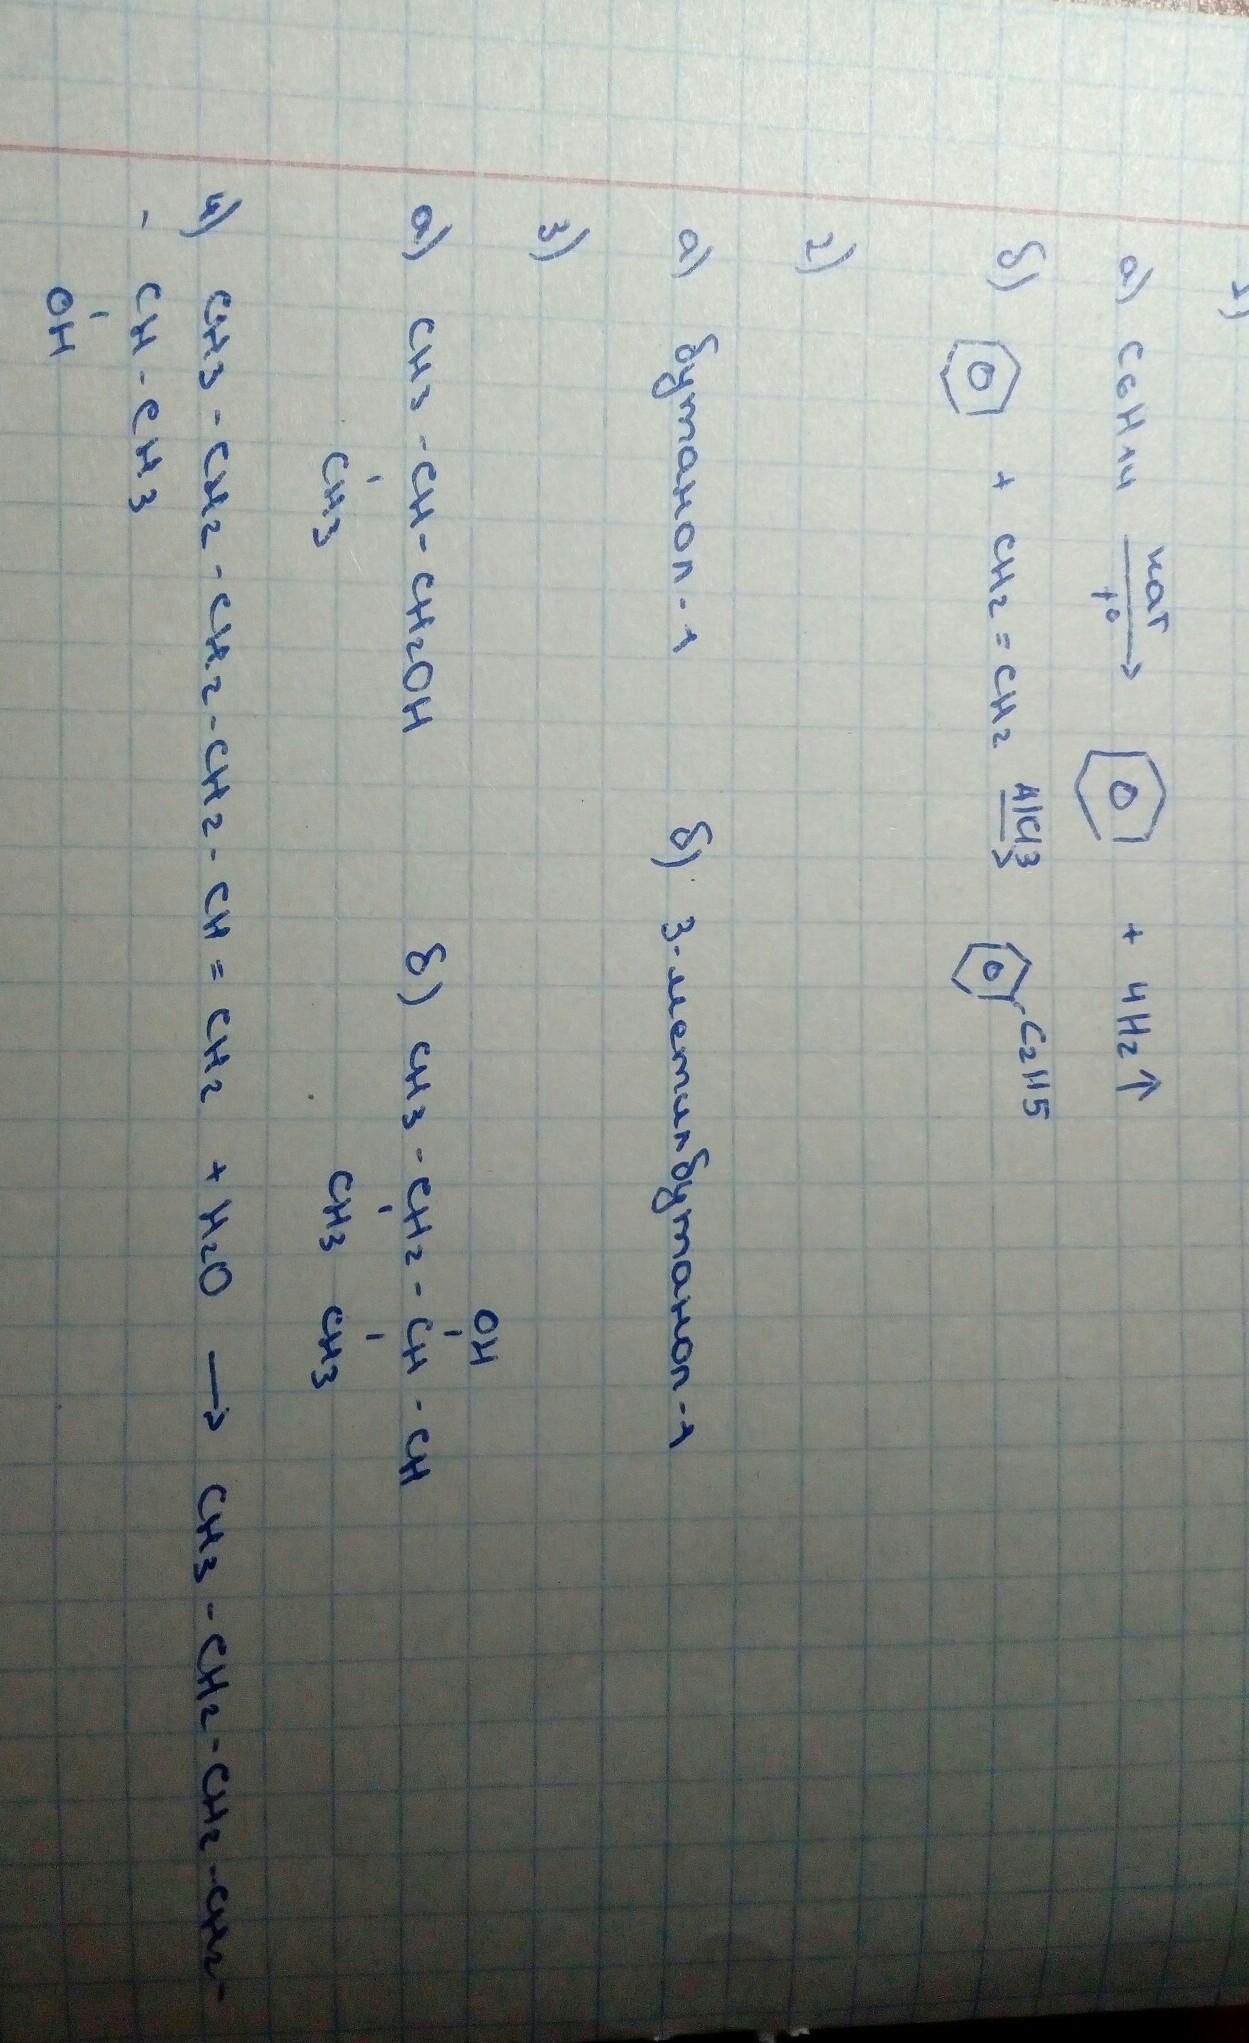 1)
а) C6H14 кат t° → + 4H2↑
б) + CH2 = CH2 AlCl3 → C2H5
2)
а) бутанол-1 б) 3-метилбутанол-1
3)
OH
а) CH3 - CH - CH2OH б) CH3 - CH2 - CH - CH
CH3 CH3 CH3
4) CH3 - CH2 - CH2 - CH2 - CH = CH2 + H2O → CH3 - CH2 - CH2 - CH2 -
- CH - CH3
OH